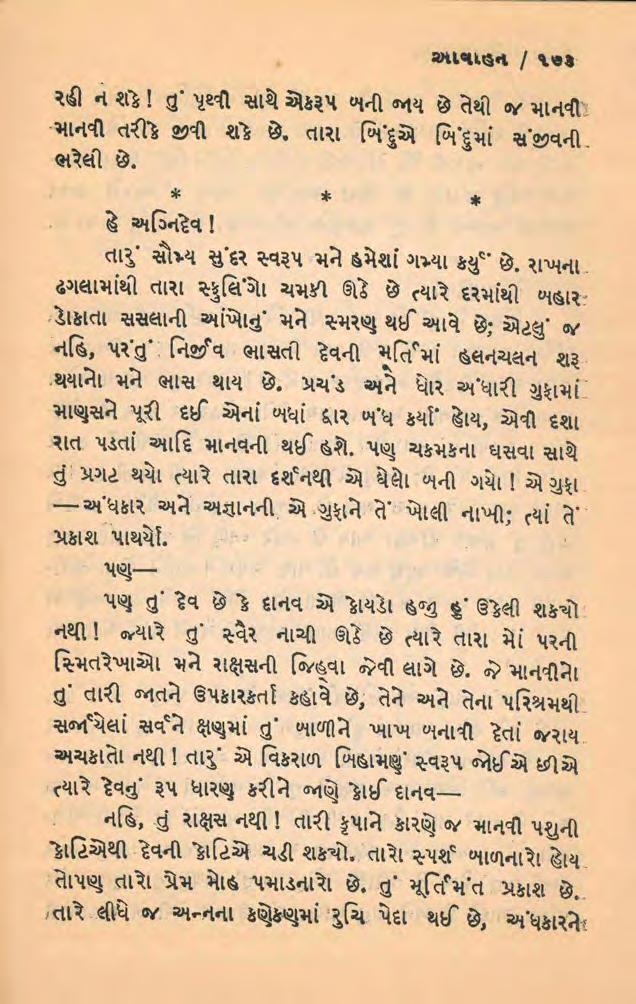 આવાહન / ૧૭૩
રહી ન શકે! તું પૃથ્વી સાથે એકરૂપ બની જાય છે તેથી જ માનવી
માનવી તરીકે જીવી શકે છે. તારા બિંદુએ બિંદુમાં સંજીવની
ભરેલી છે.
* * *
હે અગ્નિદેવ!
તારું સૌમ્ય સુંદર સ્વરૂપ મને હમેશાં ગમ્યા કર્યું છે. રાખના
ઢગલામાંથી તારા સ્ફુલિંગો ચમકી ઊઠે છે ત્યારે દરમાંથી બહાર
ડોકાતા સસલાની આંખોનું મને સ્મરણ થઈ આવે છે; એટલું જ
નહિ, પરંતુ નિર્જીવ ભાસતી દેવની મૂર્તિમાં હલનચલન શરૂ
થયાનો મને ભાસ થાય છે. પ્રચંડ અને ઘોર અંધારી ગુફામાં
માણસને પૂરી દઈ એનાં બધાં દ્વાર બંધ કર્યાં હોય, એવી દશા
રાત પડતાં આદિ માનવની થઈ હશે. પણ ચકમકના ઘસવા સાથે
તું પ્રગટ થયો ત્યારે તારા દર્શનથી એ ઘેલો બની ગયો! એ ગુફા
—અંધકાર અને અજ્ઞાનની એ ગુફાને તેં ખોલી નાખી; ત્યાં તેં
પ્રકાશ પાથર્યો.
પણ—
પણ તું દેવ છે કે દાનવ એ કોયડો હજી હું ઉકેલી શકયો
નથી! જ્યારે તું સ્વૈર નાચી ઊઠે છે ત્યારે તારા મોં પરની
સ્મિતરેખાઓ મને રાક્ષસની જિહ્વા જેવી લાગે છે. જે માનવીનો
તું તારી જાતને ઉપકારકર્તા કહાવે છે, તેને અને તેના પરિશ્રમથી
સર્જાયેલાં સર્વને ક્ષણમાં તું બાળીને ખાખ બનાવી દેતાં જરાય
અચકાતો નથી! તારું એ વિકરાળ બિહામણું સ્વરૂપ જોઈએ છીએ
ત્યારે દેવનું રૂપ ધારણ કરીને જાણે કોઈ દાનવ—
નહિ, તું રાક્ષસ નથી! તારી કૃપાને કારણે જ માનવી પશુની
કોટિએથી દેવની કોટિએ ચડી શકયો. તારો સ્પર્શ બાળનારો હોય
તોપણ તારો પ્રેમ મોહ પમાડનારો છે. તું મૂર્તિમંત પ્રકાશ છે.
તારે લીધે જ અન્નના કણેકણમાં રુચિ પેદા થઈ છે, અંધકારને